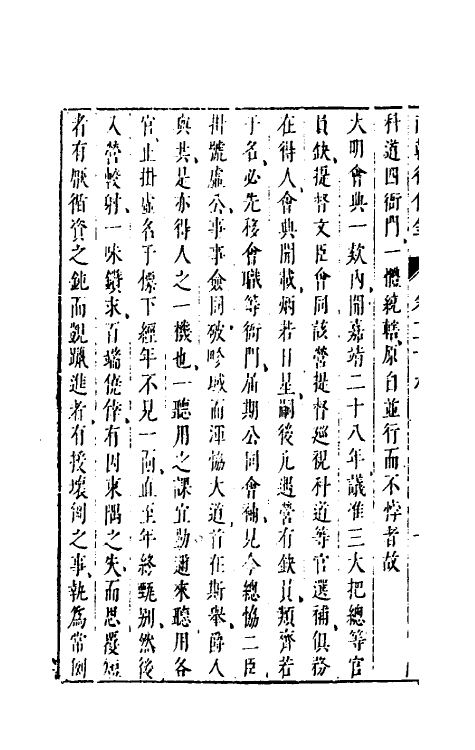 科道四衙門一體統轄原自並行而不悖者故
大明會典一款內開嘉靖二十八年議准三大把總等官
員缺提督文臣會同該營提督巡視科道等官選補俱務
在得人會典開載炳若日星嗣後凡遇營有缺員類齊若
干名必先移會職等衙門屆期公同會補見今總協二臣
掛號虛公事事僉同破畛域而渾協大道首在斯舉爵人
與共是亦得人之一機也一聽用之課宜勤邇來聽用各
官止掛虛名于標下經年不見一面直至年終甄別然後
入營較射一味鑽求百端僥倖有因東隅之失而思覆短
者有厭循資之鈍而覬躐進者有接壤閧之事執為常例